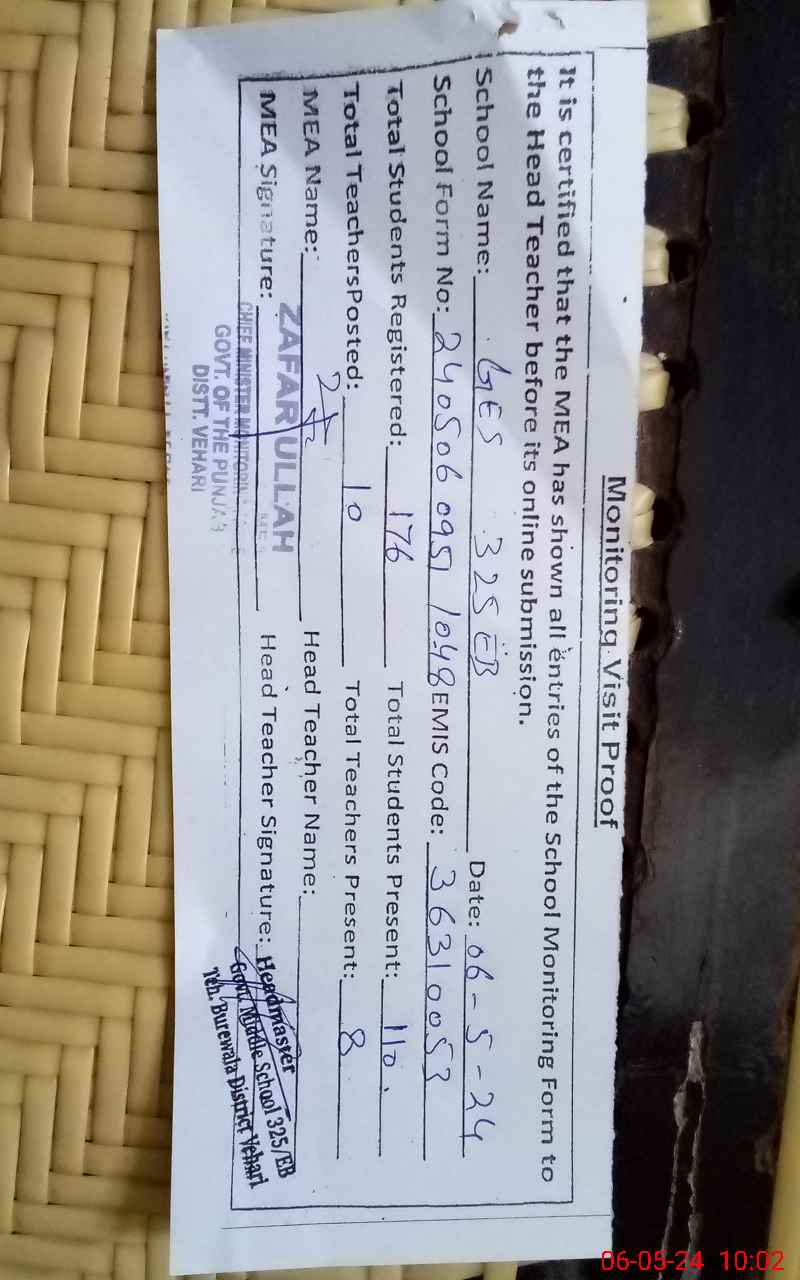 Monitoring Visit Proof
It is certified that the MEA has shown all entries of the School Monitoring Form to
the Head Teacher before its online submission.
School Name: GES 325 EB Date: 06-5-24
School Form No: 240506 0951 1048 EMIS Code: 36310053
Total Students Registered: 176 Total Students Present: 110
Total TeachersPosted: 10 Total Teachers Present: 8
MEA Name: Head Teacher Name:
ZAFAR ULLAH
MEA Signature: Head Teacher Signature:
CHIEF MINISTER
GOVT. OF THE PUNJAB
DISTT. VEHARI
Headmaster
Govt. Middle School 325/EB
Teh. Burewala District Vehari
06-05-24 10:02